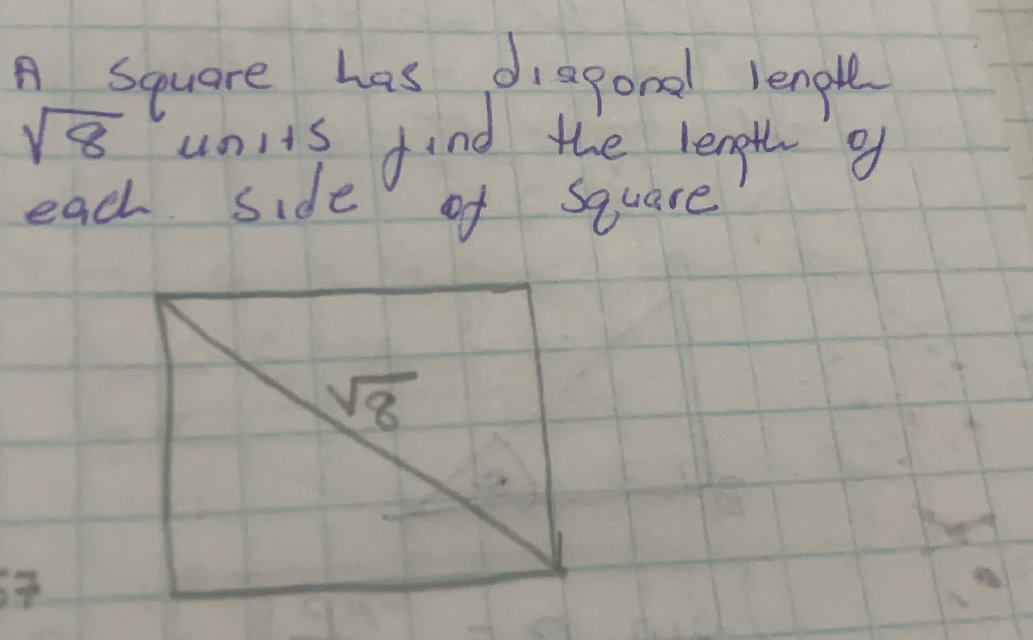 A square has diagonal length
√8 units find the length of
each side of square
√8
57